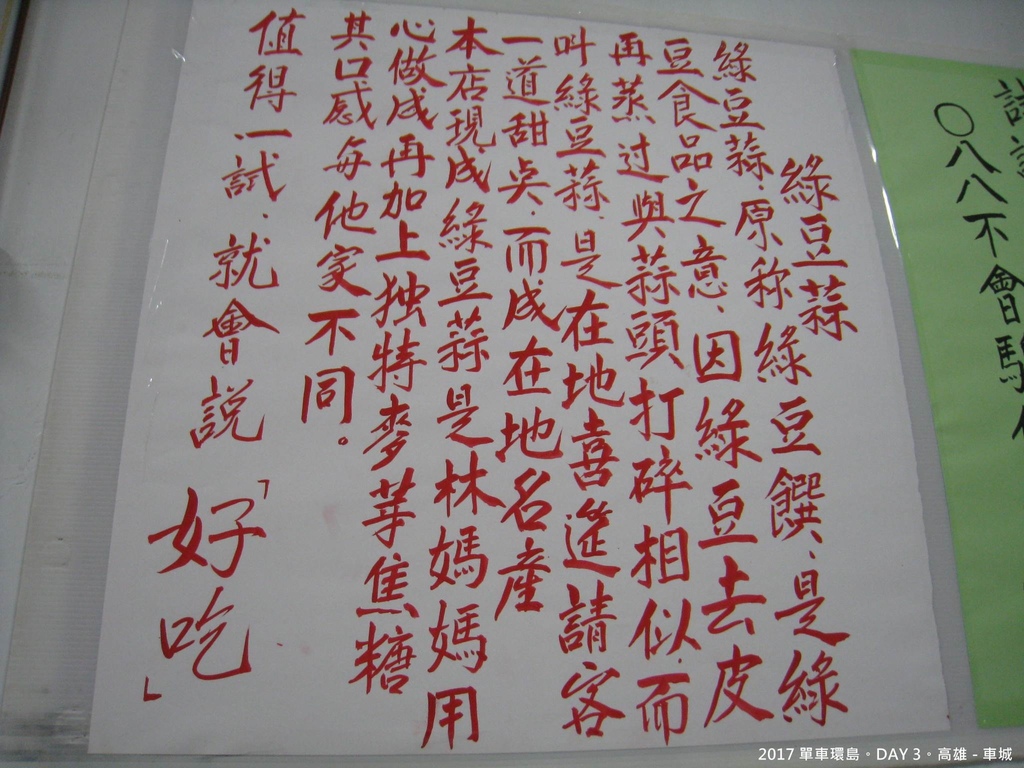 綠豆蒜
綠豆蒜.原称綠豆饌.是綠
豆食品之意.因綠豆去皮
再蒸过與蒜頭打碎相似.而
叫綠豆蒜.是在地喜筵請客
一道甜奌.而成在地名產
本店現成綠豆蒜是林媽媽用
心做成再加上独特麥芽焦糖
其口感每他家不同。
值得一試.就會說
「好吃」
〇八八不會騙
2017 單車環島。DAY 3。高雄 - 車城